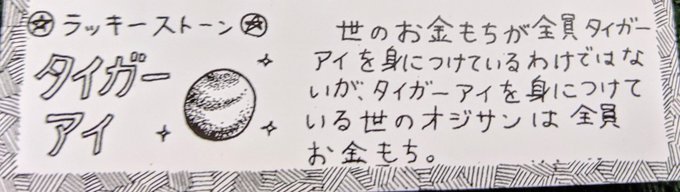 ラッキーストーン
タイガー
アイ
世のお金もちが全員タイガー
アイを身につけているわけではな
いが、タイガーアイを身につけて
いる世のオジサンは全員
お金もち。